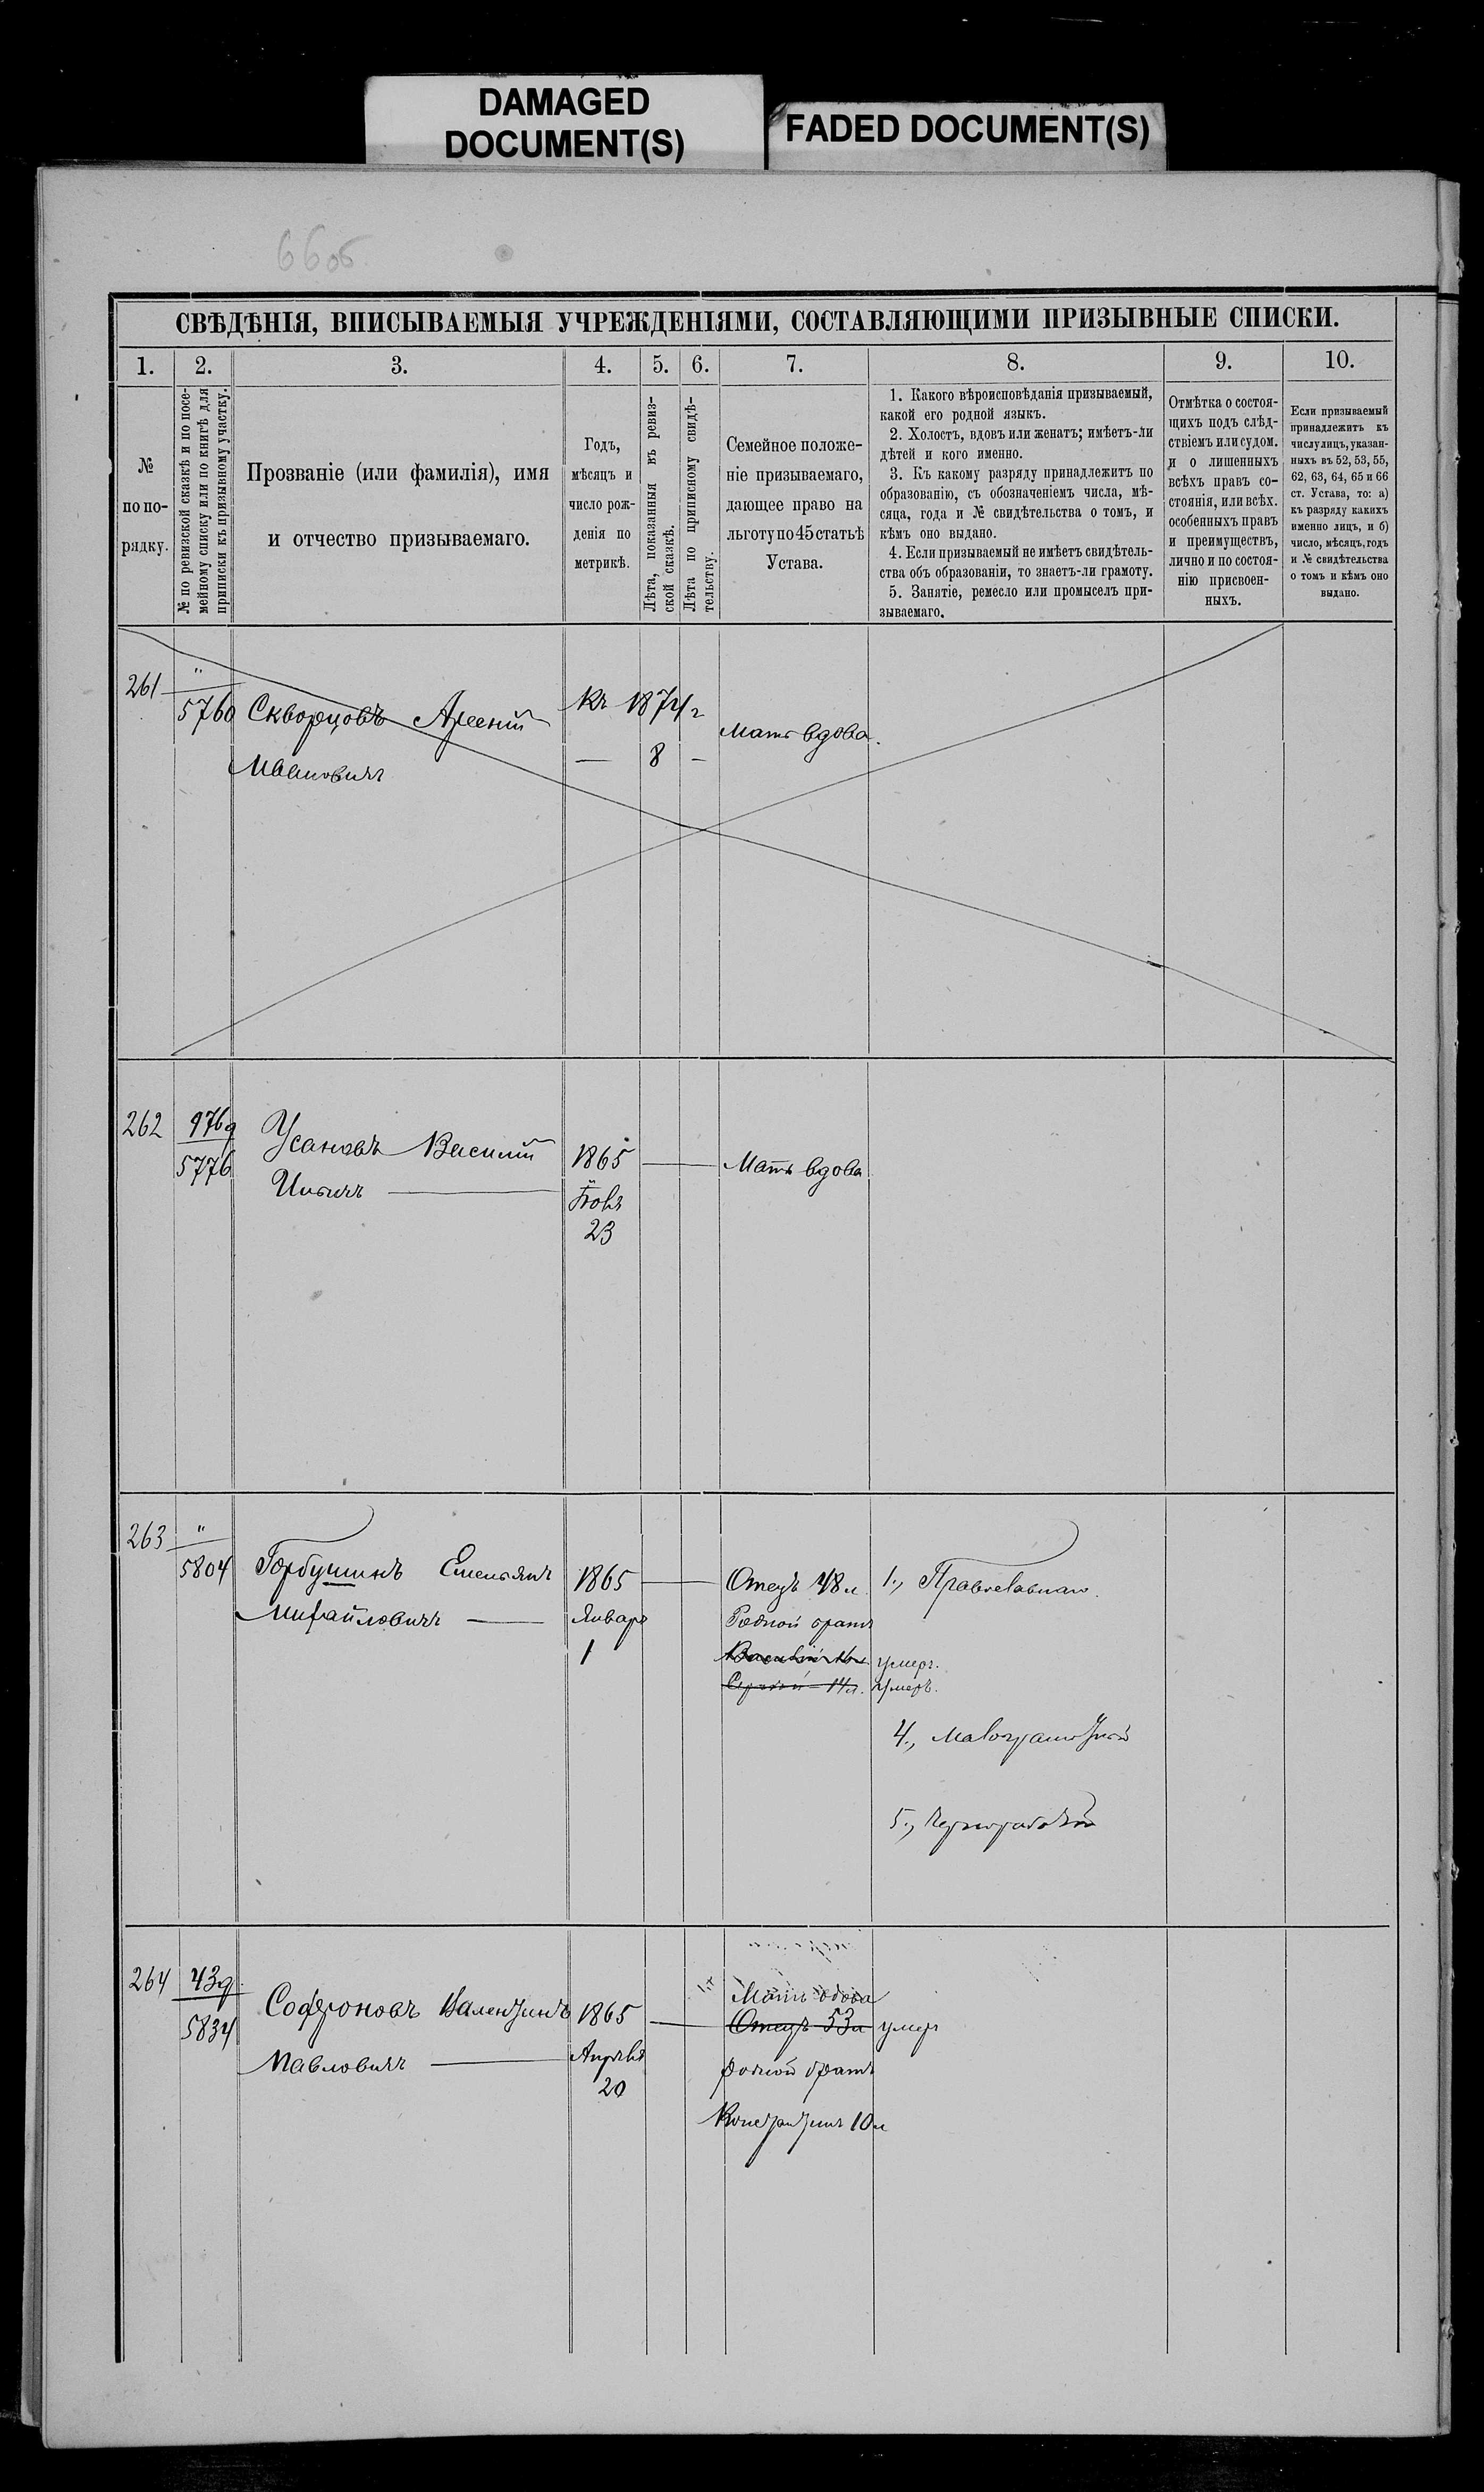 DAMAGED
DOCUMENT(S)
FADED DOCUMENT(S)
66об
СВѢДѢНІЯ, ВПИСЫВАЕМЫЯ УЧРЕЖДЕНІЯМИ, СОСТАВЛЯЮЩИМИ ПРИЗЫВНЫЕ СПИСКИ.
1. 2. 3. 4. 5. 6. 7. 8. 9. 10.
№
по по-
рядку.
№ по ревизской сказкѣ и по посе-
мейному списку или по книгѣ для
приписки къ призывному участку.
Прозваніе (или фамилія), имя
и отчество призываемаго.
Годъ,
мѣсяцъ и
число рож-
денія по
метрикѣ.
Лѣта, показанныя въ ревиз-
ской сказкѣ.
Лѣта по приписному свидѣ-
тельству.
Семейное положе-
ніе призываемаго,
дающее право на
льготу по 45 статьѣ
Устава.
1. Какого вѣроисповѣданія призываемый,
какой его родной языкъ.
2. Холостъ, вдовъ или женатъ; имѣетъ-ли
дѣтей и кого именно.
3. Къ какому разряду принадлежитъ по
образованію, съ обозначеніемъ числа, мѣ-
сяца, года и № свидѣтельства о томъ, и
кѣмъ оно выдано.
4. Если призываемый не имѣетъ свидѣтель-
ства объ образованіи, то знаетъ-ли грамоту.
5. Занятіе, ремесло или промыселъ при-
зываемаго.
Отмѣтка о состоя-
щихъ подъ слѣд-
ствіемъ или судом.
и о лишенныхъ
всѣхъ правъ со-
стоянія, или всѣх.
особенныхъ правъ
и преимуществъ,
лично и по состоя-
нію присвоен-
ныхъ.
Если призываемый
принадлежитъ къ
числу лицъ, указан-
ныхъ въ 52, 53, 55,
62, 63, 64, 65 и 66
ст. Устава, то: а)
къ разряду какихъ
именно лицъ, и б)
число, мѣсяцъ, годъ
и № свидѣтельства
о томъ и кѣмъ оно
выдано.
261 "
5760 Скворцовъ Арсеній Къ 1874 г
Ивановичъ — 8 — Мать вдова.
262 976
5776 Усановъ Василій 1865 — Мать вдова
Ильичъ —
23
263 "
5804 Горбушинъ Емельянъ 1865 — Отецъ 48 л. 1., Православнаго.
Михайловичъ — Января Родной братъ
1 Василій умеръ.
Сергѣй 14 л. умеръ.
4., Малограмотный
5., Чернорабочій
264 43
Мать вдова
5834 Софроновъ Валентинъ 1865 — Отецъ 53 л умеръ
Павловичъ — Апрѣля родной братъ
20
Константинъ 10 л